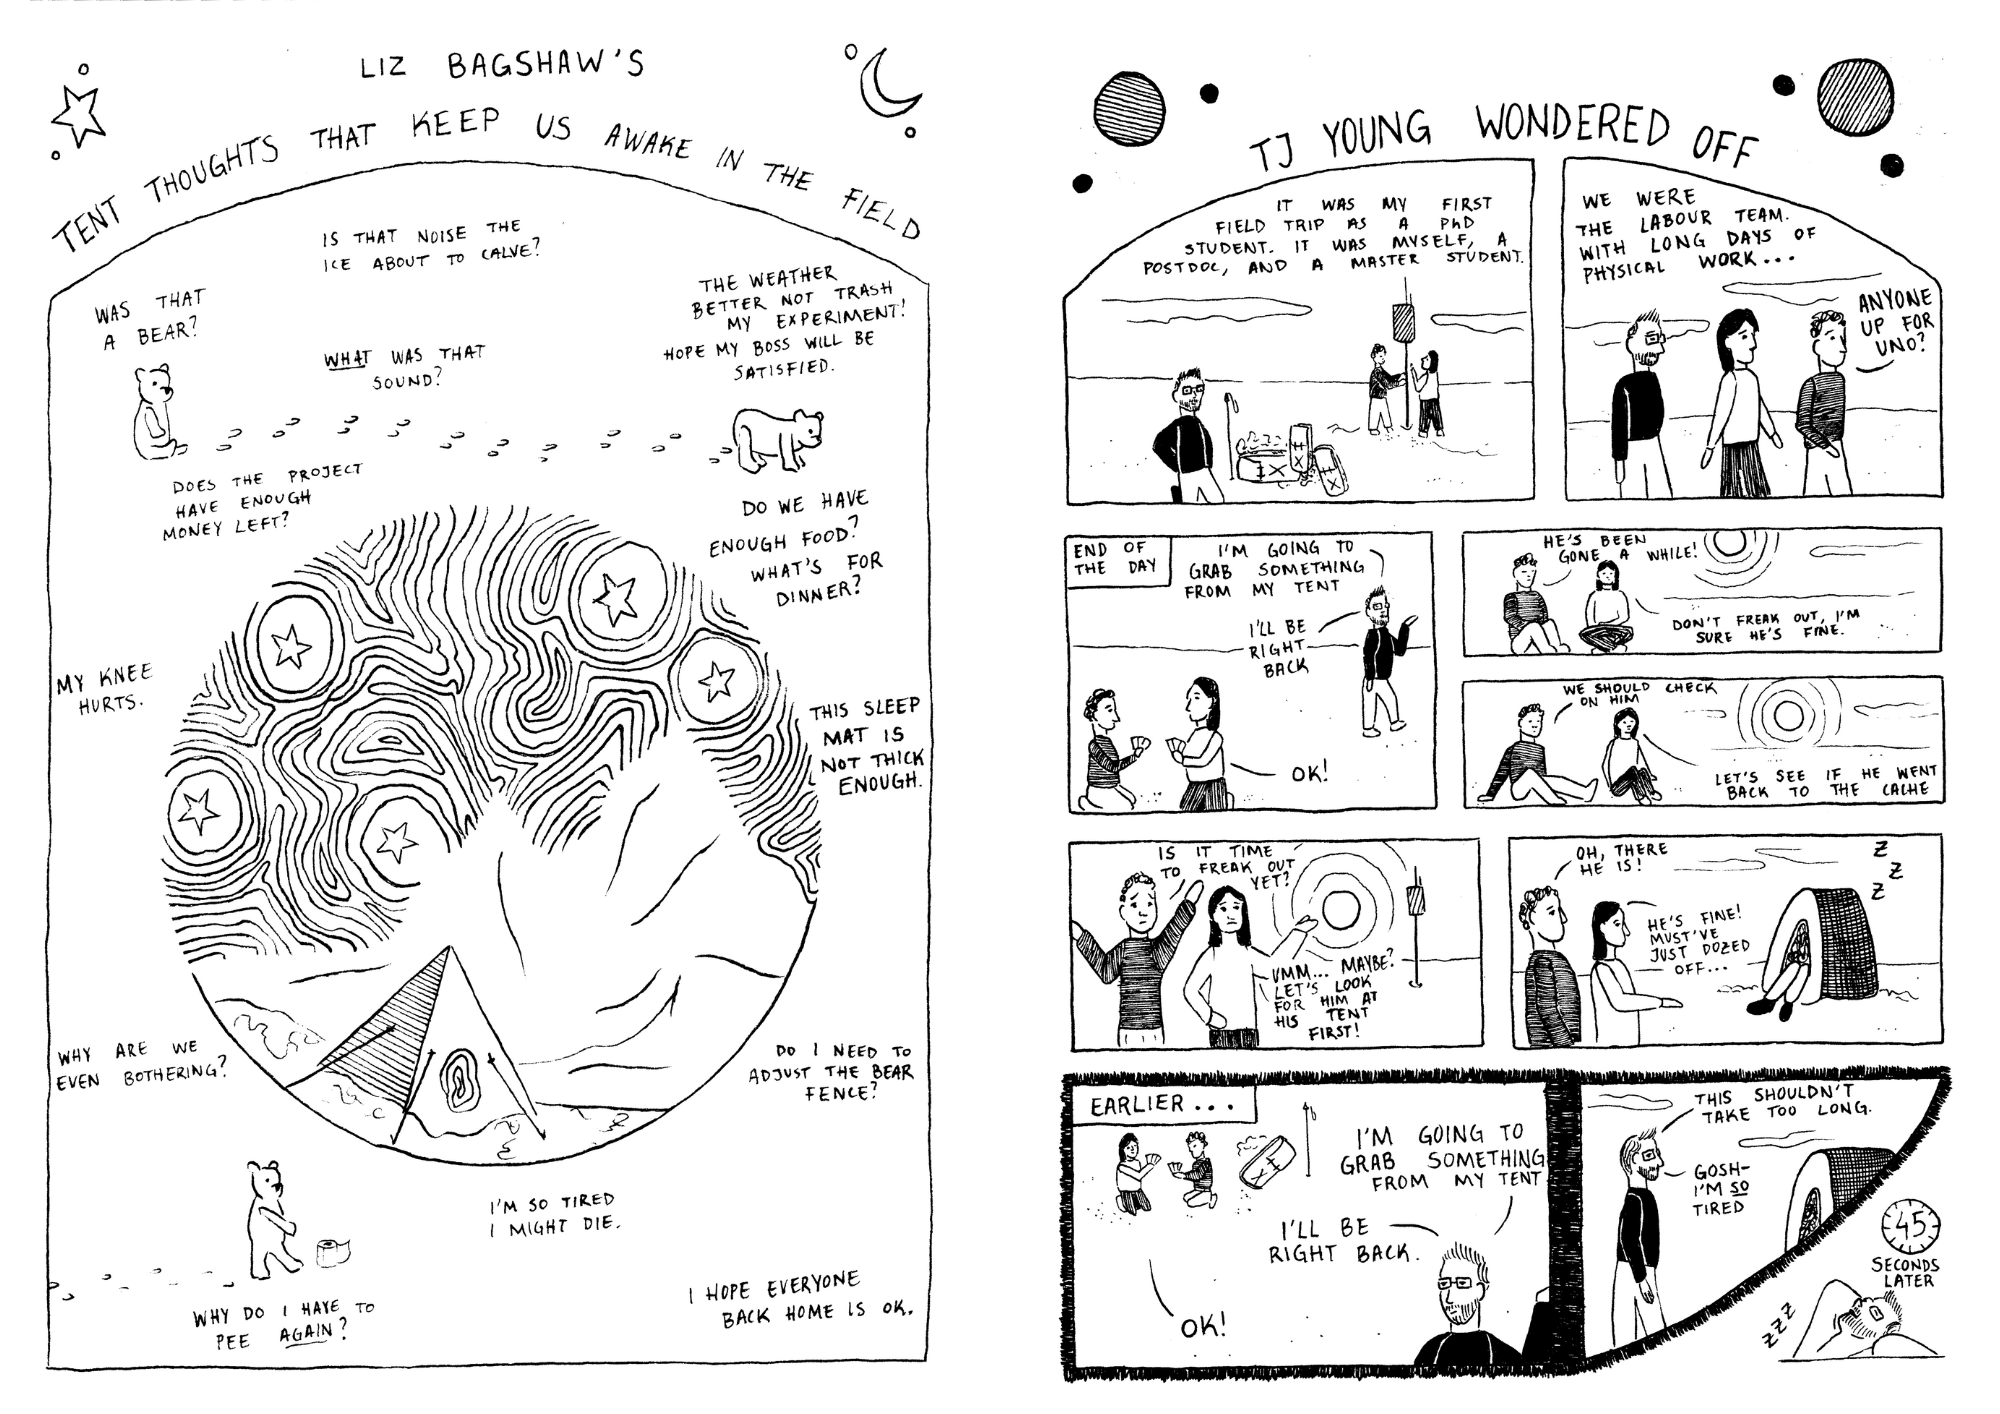 LIZ BAGSHAW'S
TENT THOUGHTS THAT KEEP US AWAKE IN THE FIELD
IS THAT NOISE THE
ICE ABOUT TO CALVE?
WAS THAT
A BEAR?
WHAT WAS THAT
SOUND?
THE WEATHER
BETTER NOT TRASH
MY EXPERIMENT!
HOPE MY BOSS WILL BE
SATISFIED.
DOES THE PROJECT
HAVE ENOUGH
MONEY LEFT?
DO WE HAVE
ENOUGH FOOD?
WHAT'S FOR
DINNER?
MY KNEE
HURTS.
THIS SLEEP
MAT IS
NOT THICK
ENOUGH.
WHY ARE WE
EVEN BOTHERING?
DO I NEED TO
ADJUST THE BEAR
FENCE?
I'M SO TIRED
I MIGHT DIE.
WHY DO I HAVE TO
PEE AGAIN?
I HOPE EVERYONE
BACK HOME IS OK.
TJ YOUNG WONDERED OFF
IT WAS MY FIRST
FIELD TRIP AS A PhD
STUDENT. IT WAS MYSELF, A
POSTDOC, AND A MASTER STUDENT.
WE WERE
THE LABOUR TEAM.
WITH LONG DAYS OF
PHYSICAL WORK...
ANYONE
UP FOR
UNO?
END OF
THE DAY
I'M GOING TO
GRAB SOMETHING
FROM MY TENT
I'LL BE
RIGHT
BACK
OK!
HE'S BEEN
GONE A WHILE!
DON'T FREAK OUT, I'M
SURE HE'S FINE.
WE SHOULD CHECK
ON HIM
LET'S SEE IF HE WENT
BACK TO THE CACHE
IS IT TIME
TO FREAK OUT
YET?
UMM... MAYBE?
LET'S LOOK
FOR HIM AT
HIS TENT
FIRST!
OH, THERE
HE IS!
HE'S FINE!
MUST'VE
JUST DOZED
OFF...
Z
Z
Z
EARLIER...
I'M GOING TO
GRAB SOMETHING
FROM MY TENT
I'LL BE
RIGHT BACK.
OK!
THIS SHOULDN'T
TAKE TOO LONG.
GOSH-
I'M SO
TIRED
45
SECONDS
LATER
ZZZ